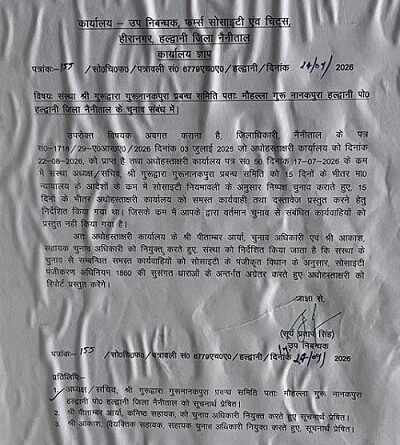 कार्यालय – उप निबन्धक, फर्म्स सोसाइटी एवं चिट्स,
हीरानगर, हल्द्वानी जिला नैनीताल
कार्यालय ज्ञाप
पत्रांकः- 155 /सो०चि०फ०/पत्रावली सं० 6779एच०ए०/हल्द्वानी/दिनांक 24/07 2026
विषयः संस्था श्री गुरूद्वारा गुरूनानकपुरा प्रबन्ध समिति पताः मौहल्ला गुरू नानकपुरा हल्द्वानी पो०
हल्द्वानी जिला नैनीताल के चुनाव संबंध में।
उपरोक्त विषयक अवगत कराना है, जिलाधिकारी, नैनीताल के पत्र
सं०-1718 /29-ए०आर०ए०/2026 दिनांक 03 जुलाई 2025 जो अधोहस्ताक्षरी कार्यालय को दिनांक
22-08-2026, को प्राप्त है तथा अधोहस्ताक्षरी कार्यालय पत्र सं० 50 दिनांक 17-07-2026 के कम
में संस्था अध्यक्ष/सचिव, श्री गुरूद्वारा गुरूनानकपुरा प्रबन्ध समिति को 15 दिनों के भीतर मा०
न्यायालय के आदेशों के कम में सोसाइटी नियमावली के अनुसार निष्पक्ष चुनाव कराते हुए, 15
दिनों के भीतर अधोहस्ताक्षरी कार्यालय को समस्त कार्यवाही तथा दस्तावेज प्रस्तुत करने हेतु
निर्देशित किया गया था। जिसके कम में आपके द्वारा वर्तमान चुनाव से संबंधित कार्यवाहियों को
प्रस्तुत नहीं किया गया है।
अतः अधोहस्ताक्षरी कार्यालय के श्री पीताम्बर आर्या, चुनाव अधिकारी एवं श्री आकाश,
सहायक चुनाव अधिकारी को नियुक्त करते हुए, संस्था को निर्देशित किया जाता है कि संस्था के
चुनाव से सम्बन्धित समस्त कार्यवाहियों को सोसाइटी के पंजीकृत विधान के अनुसार, सोसाइटी
पंजीकरण अधिनियम 1860 की सुसंगत धाराओं के अन्तर्गत अग्रेतर करते हुए अधोहस्ताक्षरी को
रिपोर्ट प्रस्तुत करेंगे।
आज्ञा से,
(सूर्य प्रताप सिंह)
उप निबन्धक
पत्रांकः- 155 /सो०चि०फ०/पत्रावली सं० 6779एच०ए०/हल्द्वानी/दिनांक 24/07 2026
प्रतिलिपिः-
1. अध्यक्ष/सचिव, श्री गुरूद्वारा गुरूनानकपुरा प्रबन्ध समिति पताः मौहल्ला गुरू नानकपुरा
हल्द्वानी पो० हल्द्वानी जिला नैनीताल को सूचनार्थ प्रेषित।
2. श्री पीताम्बर आर्या, कनिष्ठ सहायक, को चुनाव अधिकारी नियुक्त करते हुए सूचनार्थ प्रेषित।
3. श्री आकाश, वैयक्तिक सहायक, सहायक चुनाव अधिकारी नियुक्त करते हुए सूचनार्थ प्रेषित।